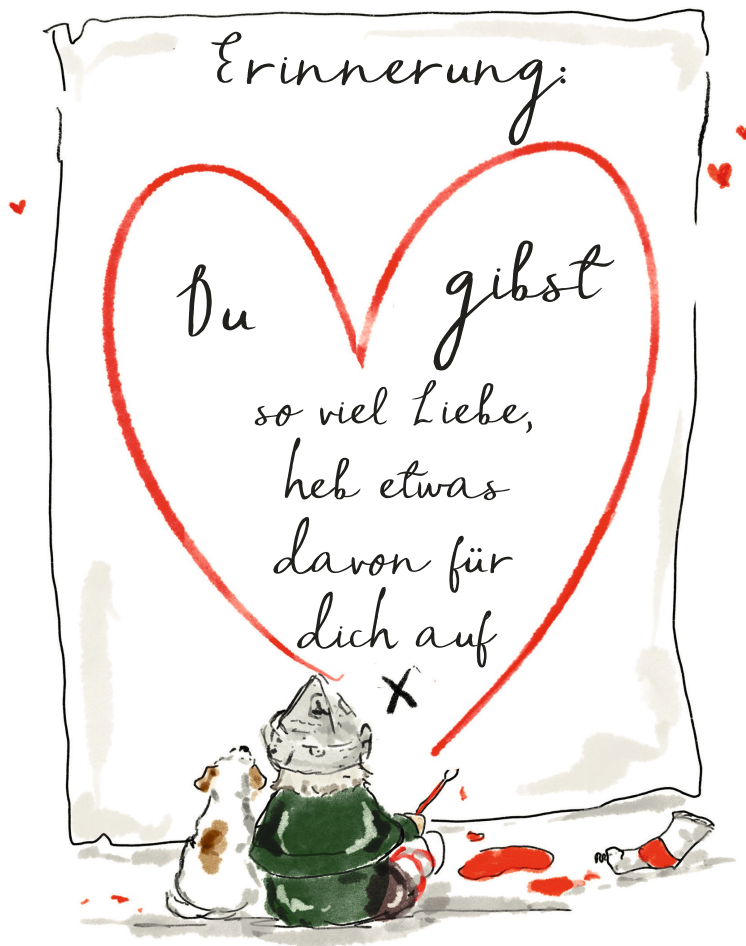 Erinnerung:
Du gibst
so viel Liebe,
heb etwas
davon für
dich auf
x